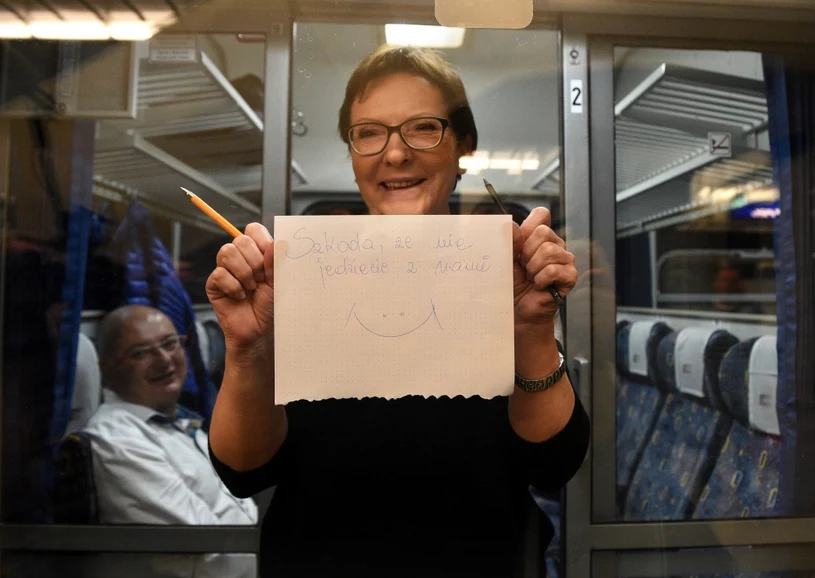 2
Szkoda, że nie
jedziecie z nami